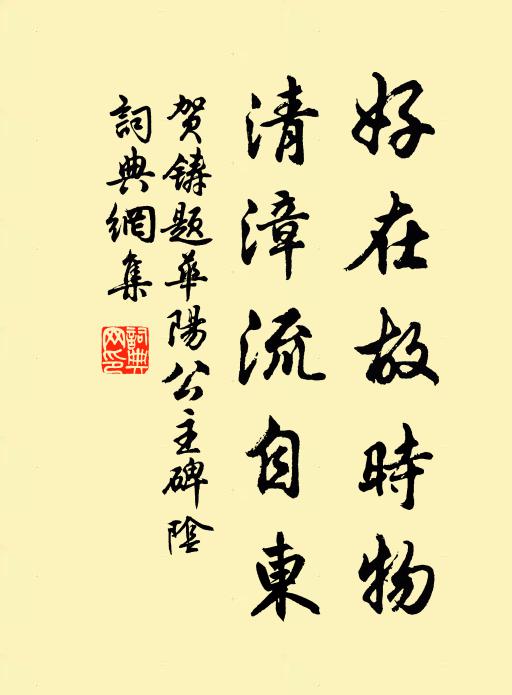 好在故時物
清漳流自東
賀鑄題華陽公主碑陰
詞典網集
詞典網印